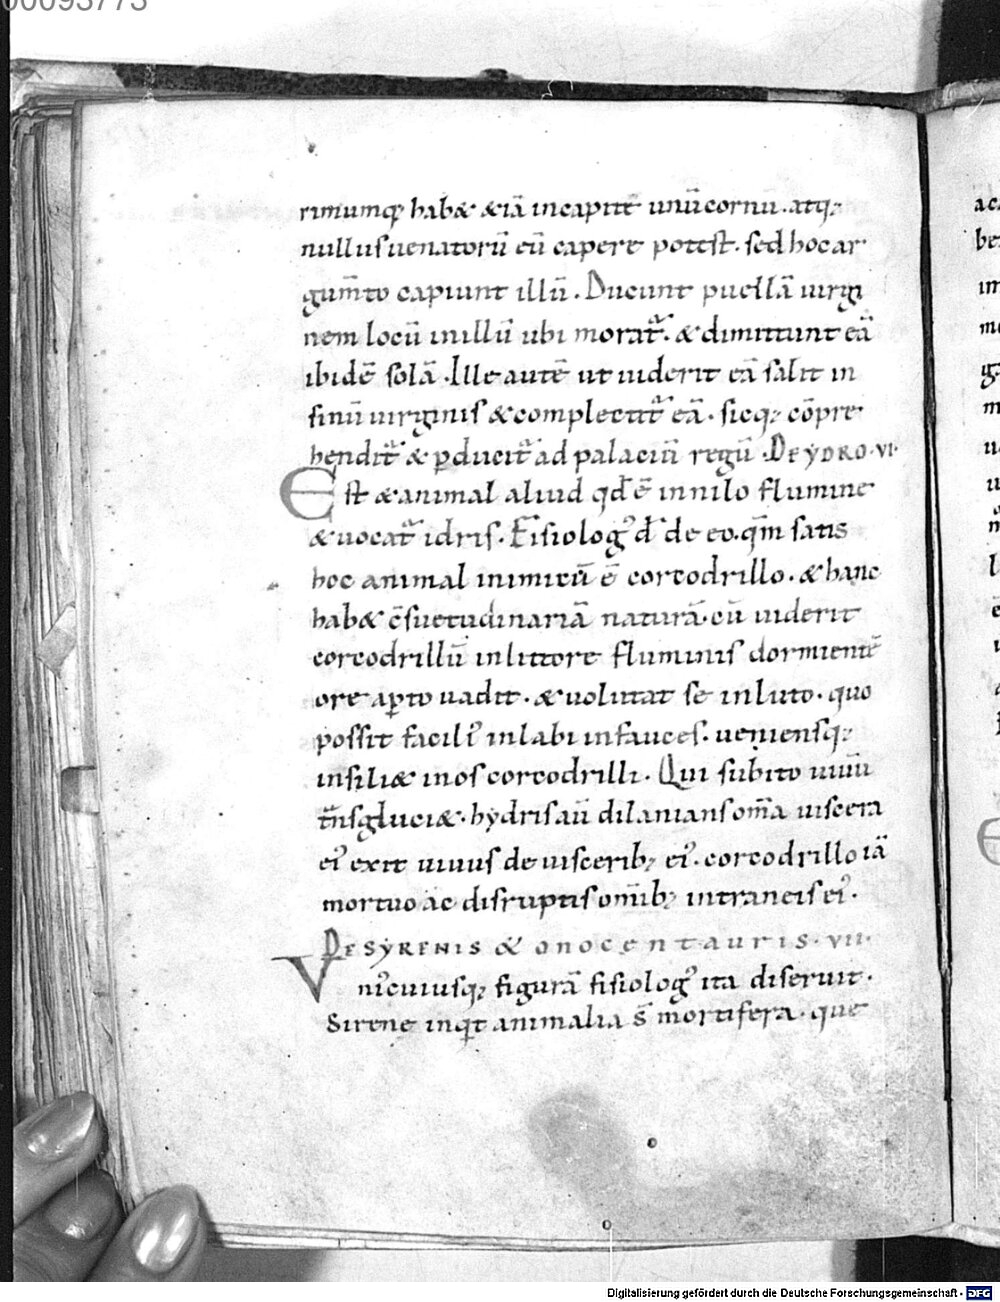 00093773
rimumq; habꝫ &iā incapitē unū cornū. atq;
nullus uenatorū eū capere potest. sed hoc ar
gum̄to capiunt illū. Ducunt puellā uirgi
nem locū in illū ubi morat᷑. & dimittunt eā
ibidē solā. Ille autē ut uiderit eā salit in
sinū uirginis & complectit᷑ eā. sicq; cōpre
hendit᷑ & ꝑducit᷑ ad palaciū regū. DE YDRO. VI.
Est & animal aliud qd̄ ē in nilo flumine
& uocat᷑ idris. Fisiologꝰ d̄ de eo. qm̄ satis
hoc animal inimicū ē corcodrillo. & hanc
hab& c̄suetudinariā naturā. cū uiderit
corcodrillū in littore fluminis dormientē
ore aꝑto uadit. & uolutat se in luto. quo
possit faciliꝰ inlabi in fauces. ueniensq;
insili& in os corcodrilli. Qui subito uiuū
t̄nsgluci&. hydris aū dilanians om̄a uiscera
eiꝰ exit uiuus de uiscerib; eiꝰ. corcodrillo iā
mortuo ac disruptis om̄ib; intraneis eiꝰ.
DE SYRENIS & ONOCENTAURIS. VII.
Vniꝰcuiusq; figurā fisiologꝰ ita diseruit.
Sirene inq̇t animalia s̄ mortifera. que
Digitalisierung gefördert durch die Deutsche Forschungsgemeinschaft - DFG